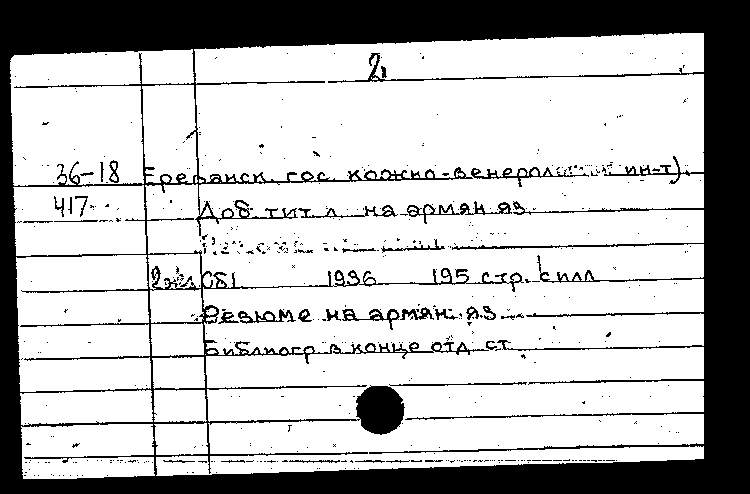 2.
36-18 Ереванск. гос. кожно-венеролог ин-т).
417 Доб. тит л. на армян яз.
2 экз Сб1 1936 195 стр. с илл
Резюме на армян. яз.
Библиогр в конце отд ст.